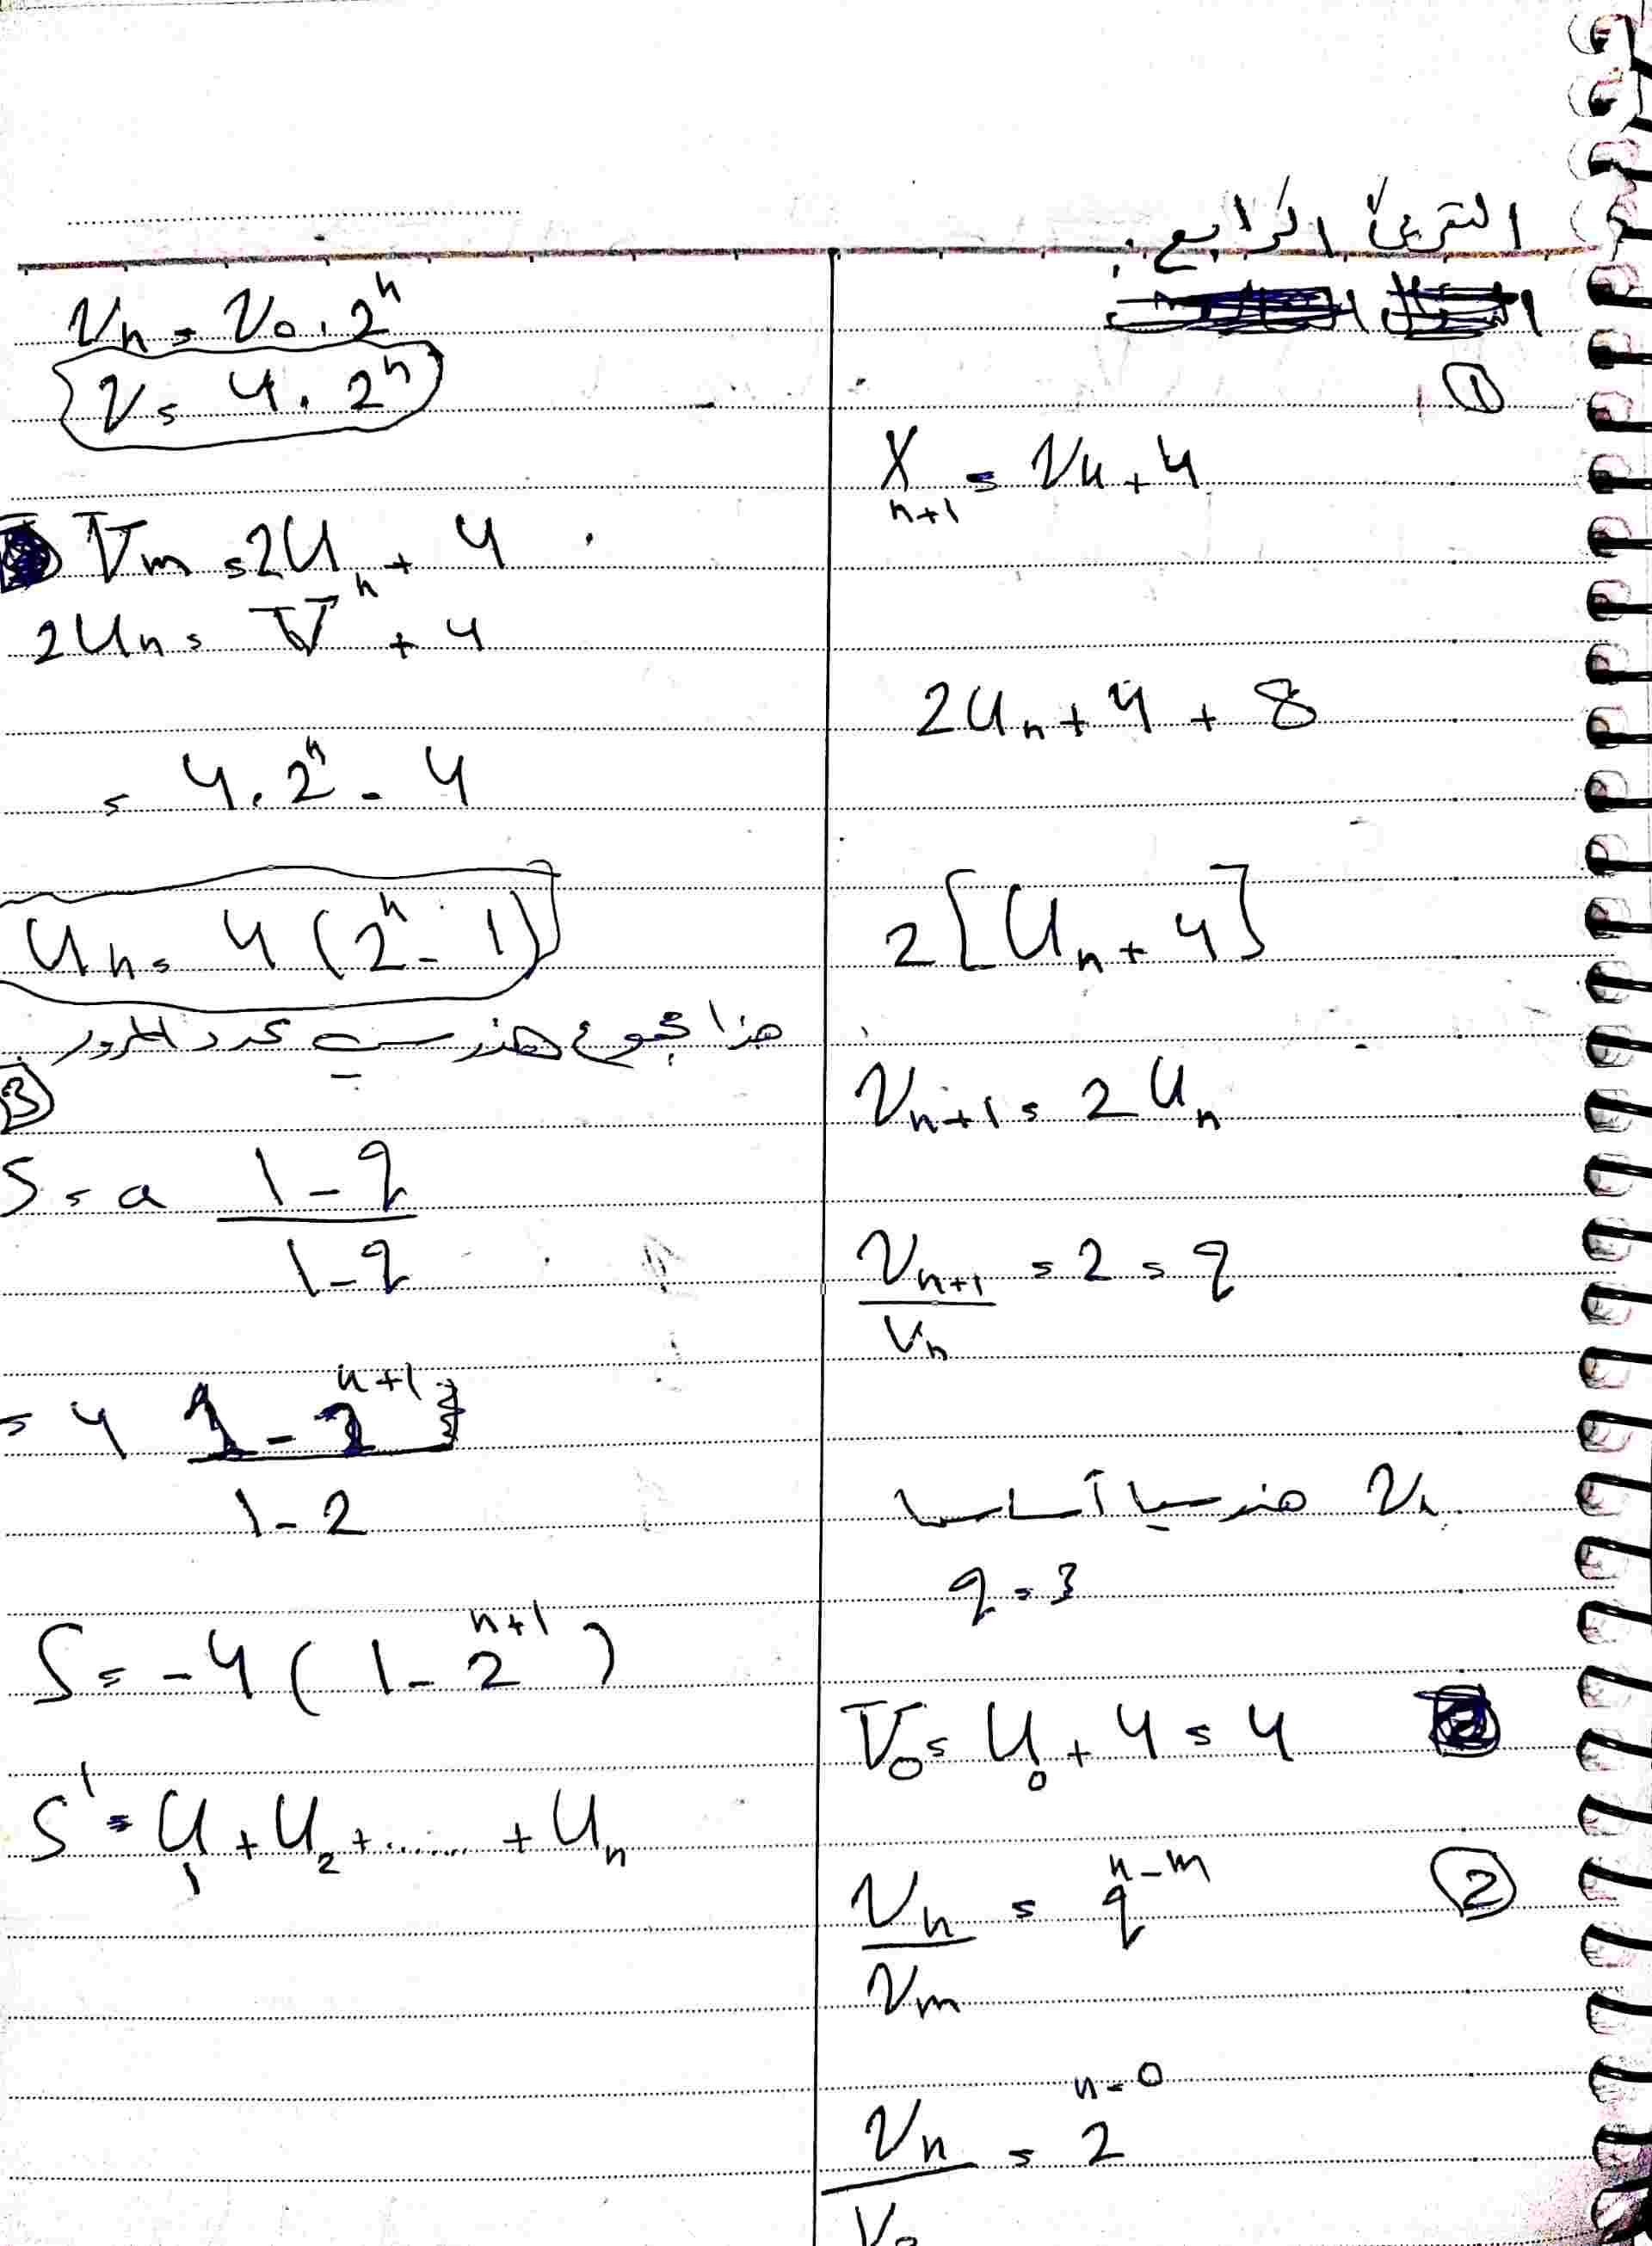 التمرين الرابع :
①
X n+1 = Vn + 4
2Un + 4 + 8
2[Un + 4]
Vn+1 = 2Un
Vn+1 / Vn = 2 = q
Vn هندسيا أساسا
q = 3
V0 = U0 + 4 = 4
② Vn / Vm = q^n-m
Vn / V0 = 2^n-0
Vn = V0 . 2^n
V = 4 . 2^n
Vm = 2Un + 4
2Un = V + 4
= 4 . 2^n - 4
Un = 4 (2^n - 1)
هذا مجموع هندسي عدد الحدود
③
S = a (1 - q) / (1 - q)
= 4 (1 - 2^n+1) / (1 - 2)
S = -4 (1 - 2^n+1)
S' = U1 + U2 + ...... + Un